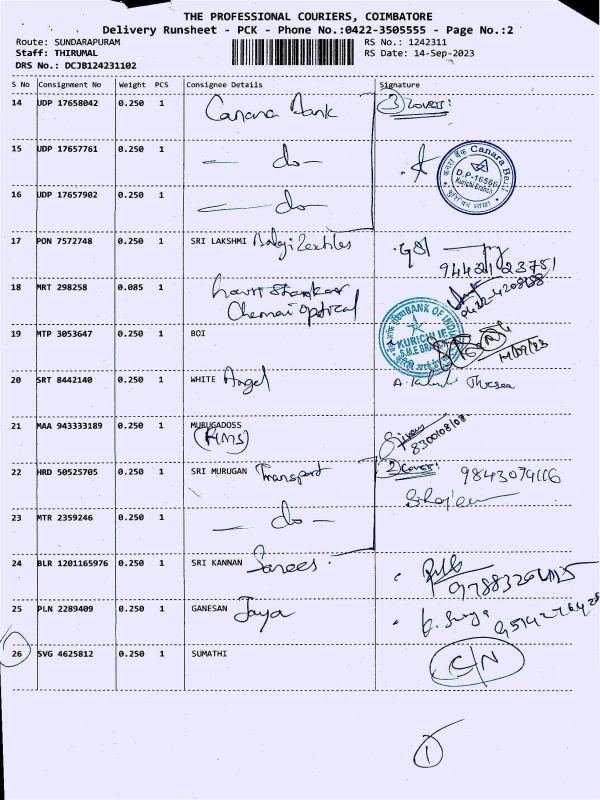 THE PROFESSIONAL COURIERS, COIMBATORE
Delivery Runsheet - PCK - Phone No.:0422-3505555 - Page No.:2
Route: SUNDARAPURAM RS No.: 1242311
Staff: THIRUMAL RS Date: 14-Sep-2023
DRS No.: DCJB124231102
S No Consignment No Weight PCS Consignee Details Signature
14 UDP 17658042 0.250 1 Canara Bank 3 Covers:
15 UDP 17657761 0.250 1 - do -
Canara Bank
D.P-16566
Kurichi Branch
16 UDP 17657902 0.250 1 - do -
17 PON 7572748 0.250 1 SRI LAKSHMI Balaji Textiles
18 MRT 298258 0.085 1 Gowri Shankar
Chennai Optical
19 MTP 3053647 0.250 1 BOI
BANK OF INDIA
KURICHI IE
S.M.E BRANCH
20 SRT 8442140 0.250 1 WHITE Angel
21 MAA 943333189 0.250 1 MURUGADOSS
22 HRD 50525705 0.250 1 SRI MURUGAN Transport 2 Covers: 9843079116
23 MTR 2359246 0.250 1 - do -
24 BLR 1201165976 0.250 1 SRI KANNAN Sarees.
25 PLN 2289409 0.250 1 GANESAN Jaya
26 SVG 4625812 0.250 1 SUMATHI C/N
1